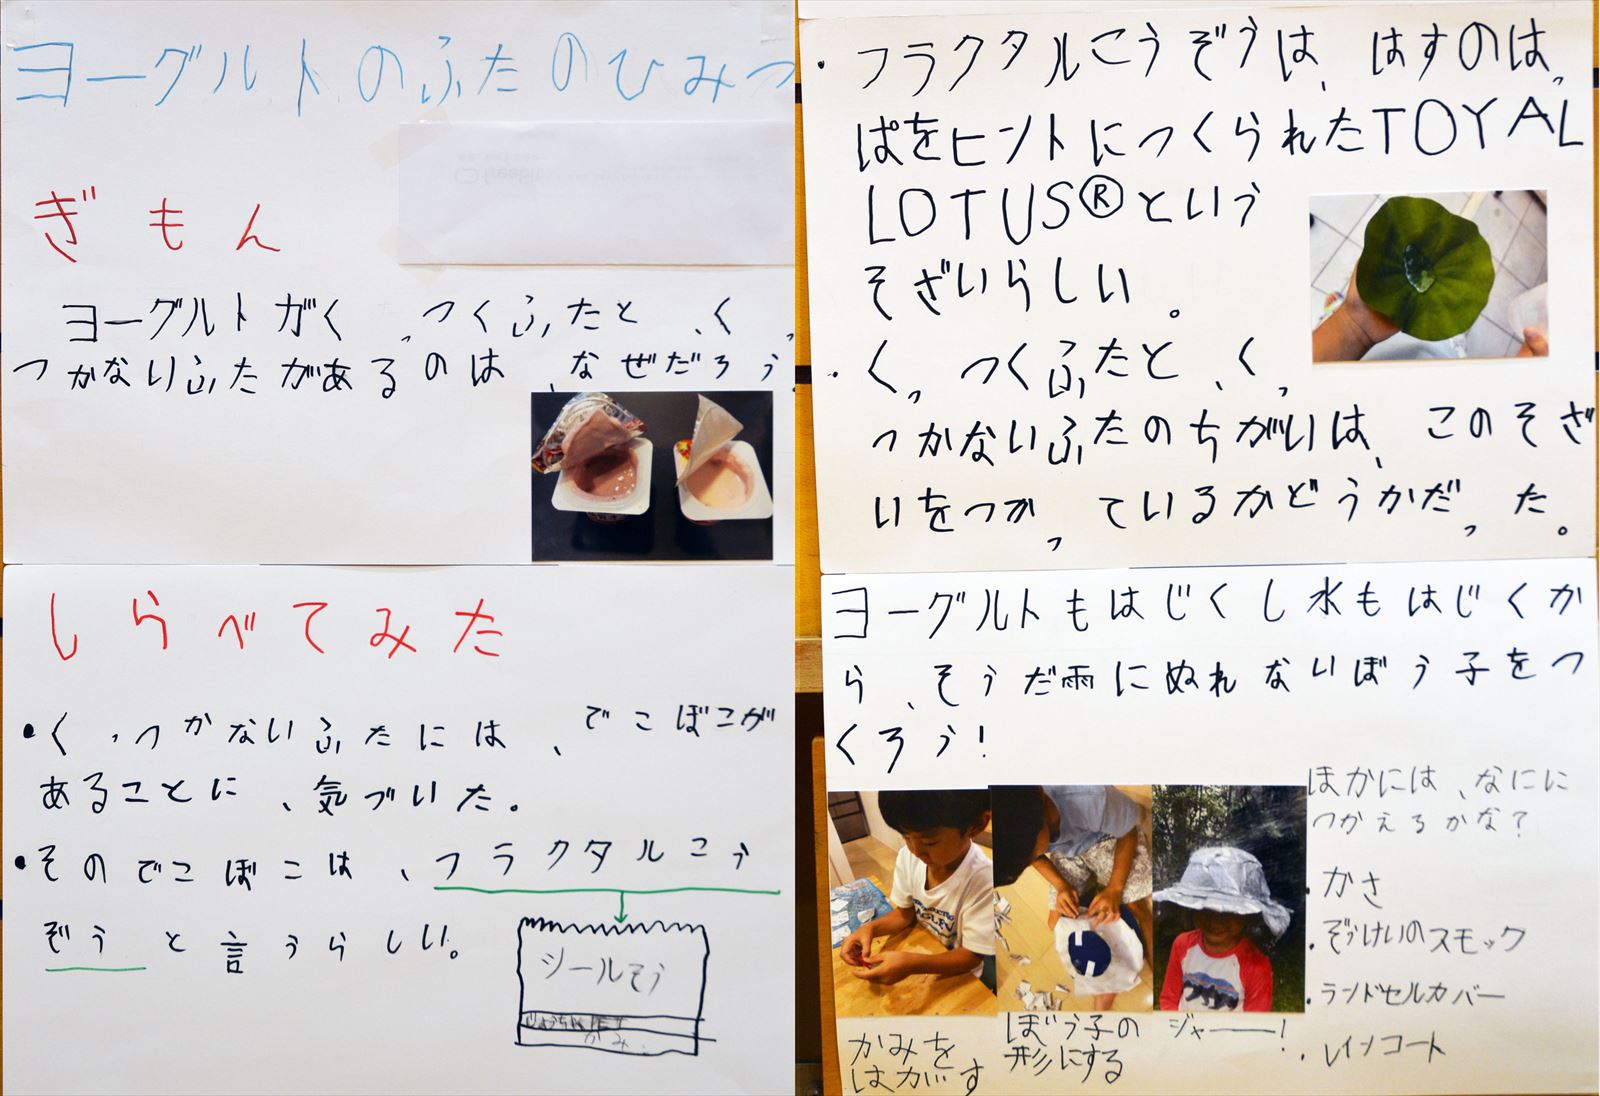 ヨーグルトのふたのひみつ
ぎもん
ヨーグルトがくっつくふたと、くっ
つかないふたがあるのは、なぜだろう。
しらべてみた
・くっつかないふたには、でこぼこが
あることに、気づいた。
・そのでこぼこは、フラクタルこう
ぞうと言うらしい。
シールそう
かみ
・フラクタルこうぞうは、はすのはっ
ぱをヒントにつくられたTOYAL
LOTUS®という
そざいらしい。
・くっつくふたと、くっ
つかないふたのちがいは、このそざ
いをつかっているかどうかだった。
ヨーグルトもはじくし水もはじくか
ら、そうだ雨にぬれないぼう子をつ
くろう!
ほかには、なにに
つかえるかな?
・かさ
・ぞうけいのスモック
・ランドセルカバー
・レインコート
かみを
はがす
ぼう子の
形にする
ジャー!